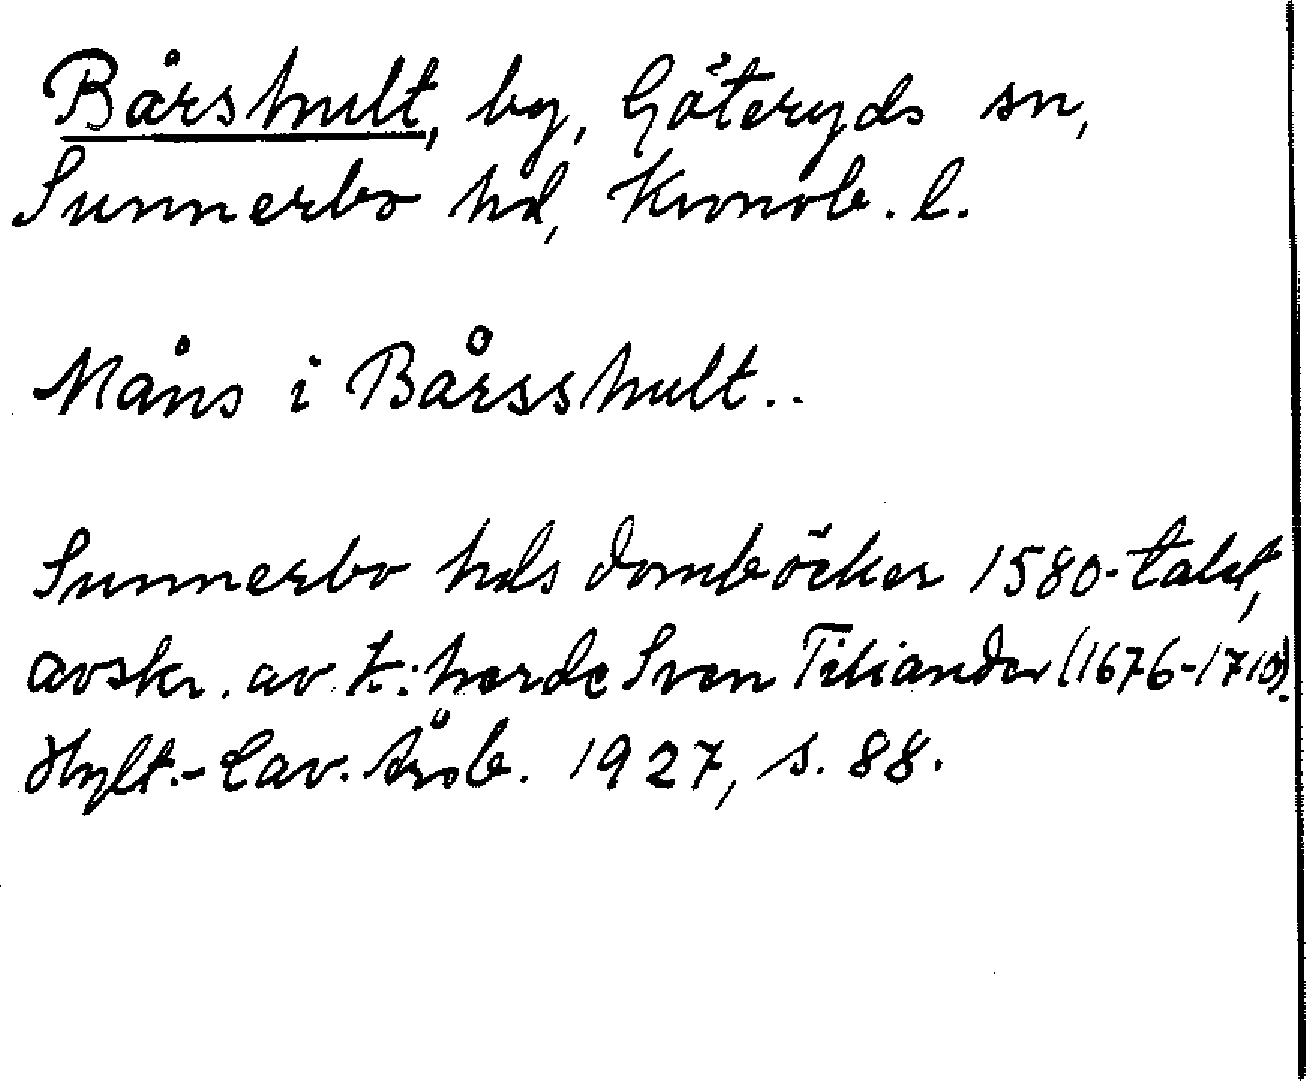 Bårshult, by, Göteryds sn,
Sunnerbo hd, Kronob. l.
Måns i Bårsshult..
Sunnerbo hds domböcker 1580-talet,
avskr. av k: herde Sven Tiliander (1676-1710).
Hylt.-Cav. Årsb. 1927, s. 88.